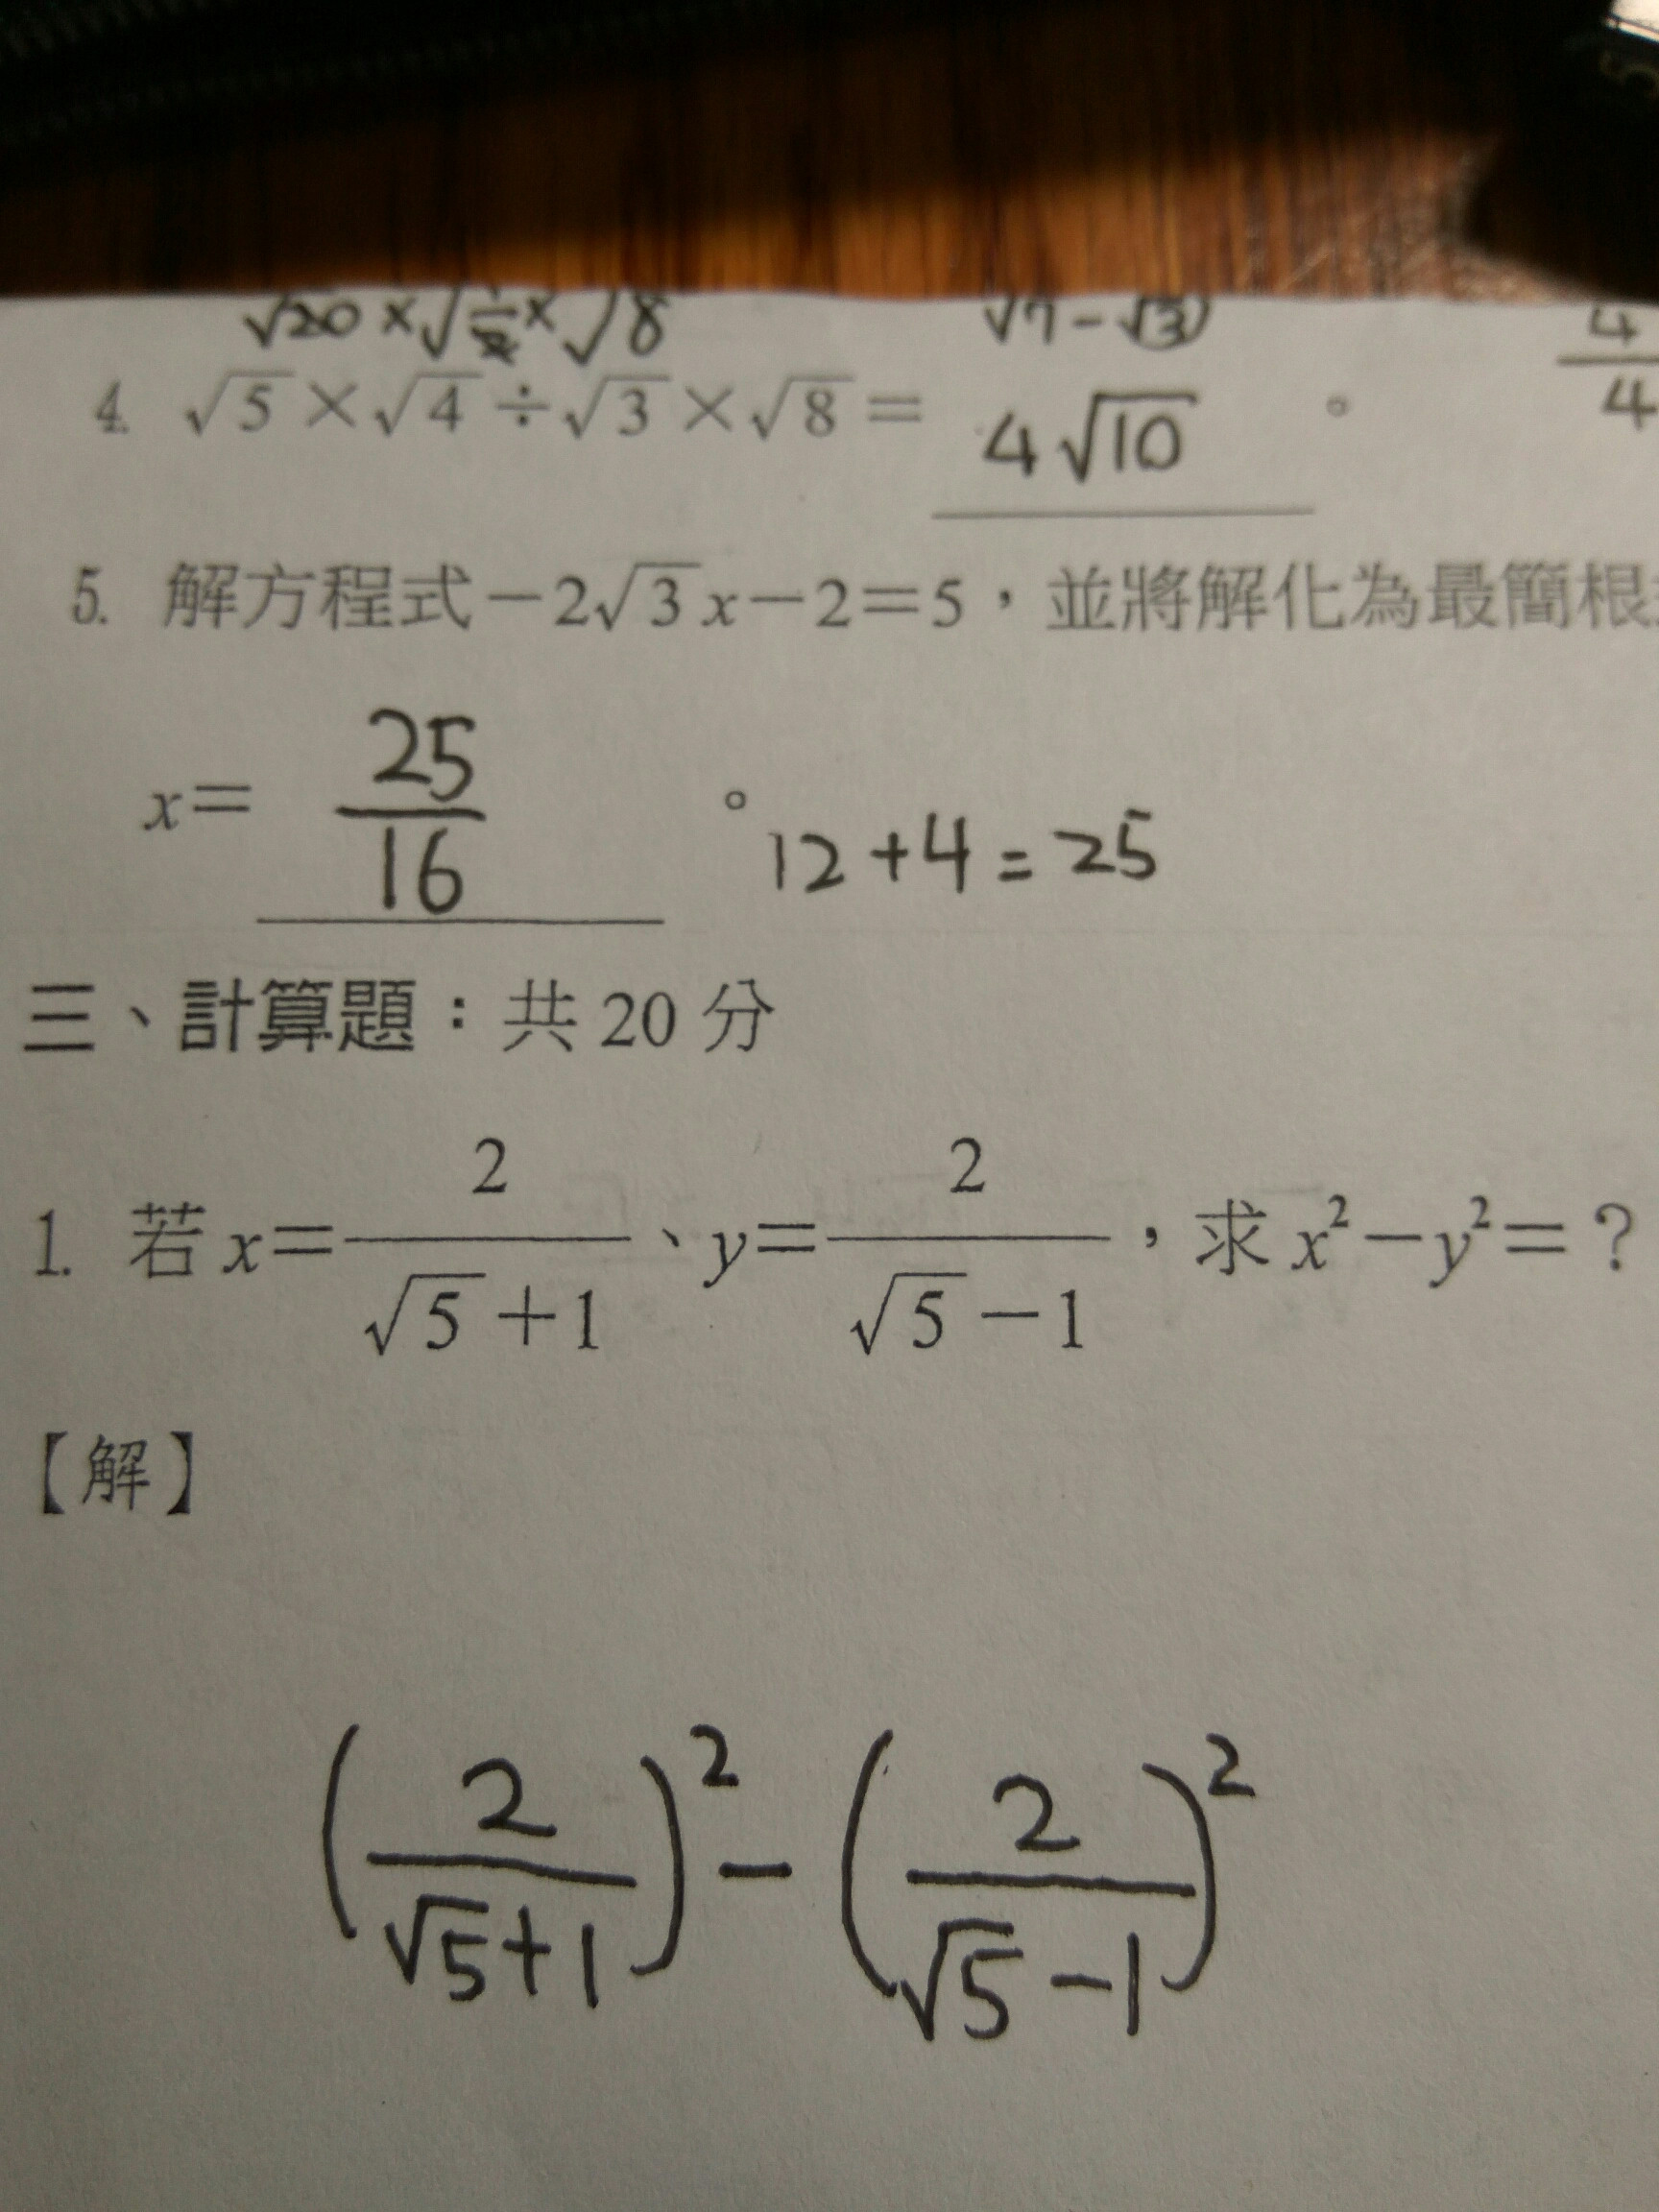 √20 × √ × √8 √7 - √3
4
4
4. √5 × √4 ÷ √3 × √8 = 4√10 。
5. 解方程式-2√3x-2=5,並將解化為最簡根
x= 25/16 。 12+4=25
三、計算題:共 20 分
1. 若 x=2/(√5+1)、y=2/(√5-1),求 x²-y²=?
【解】
(2/(√5+1))² - (2/(√5-1))²